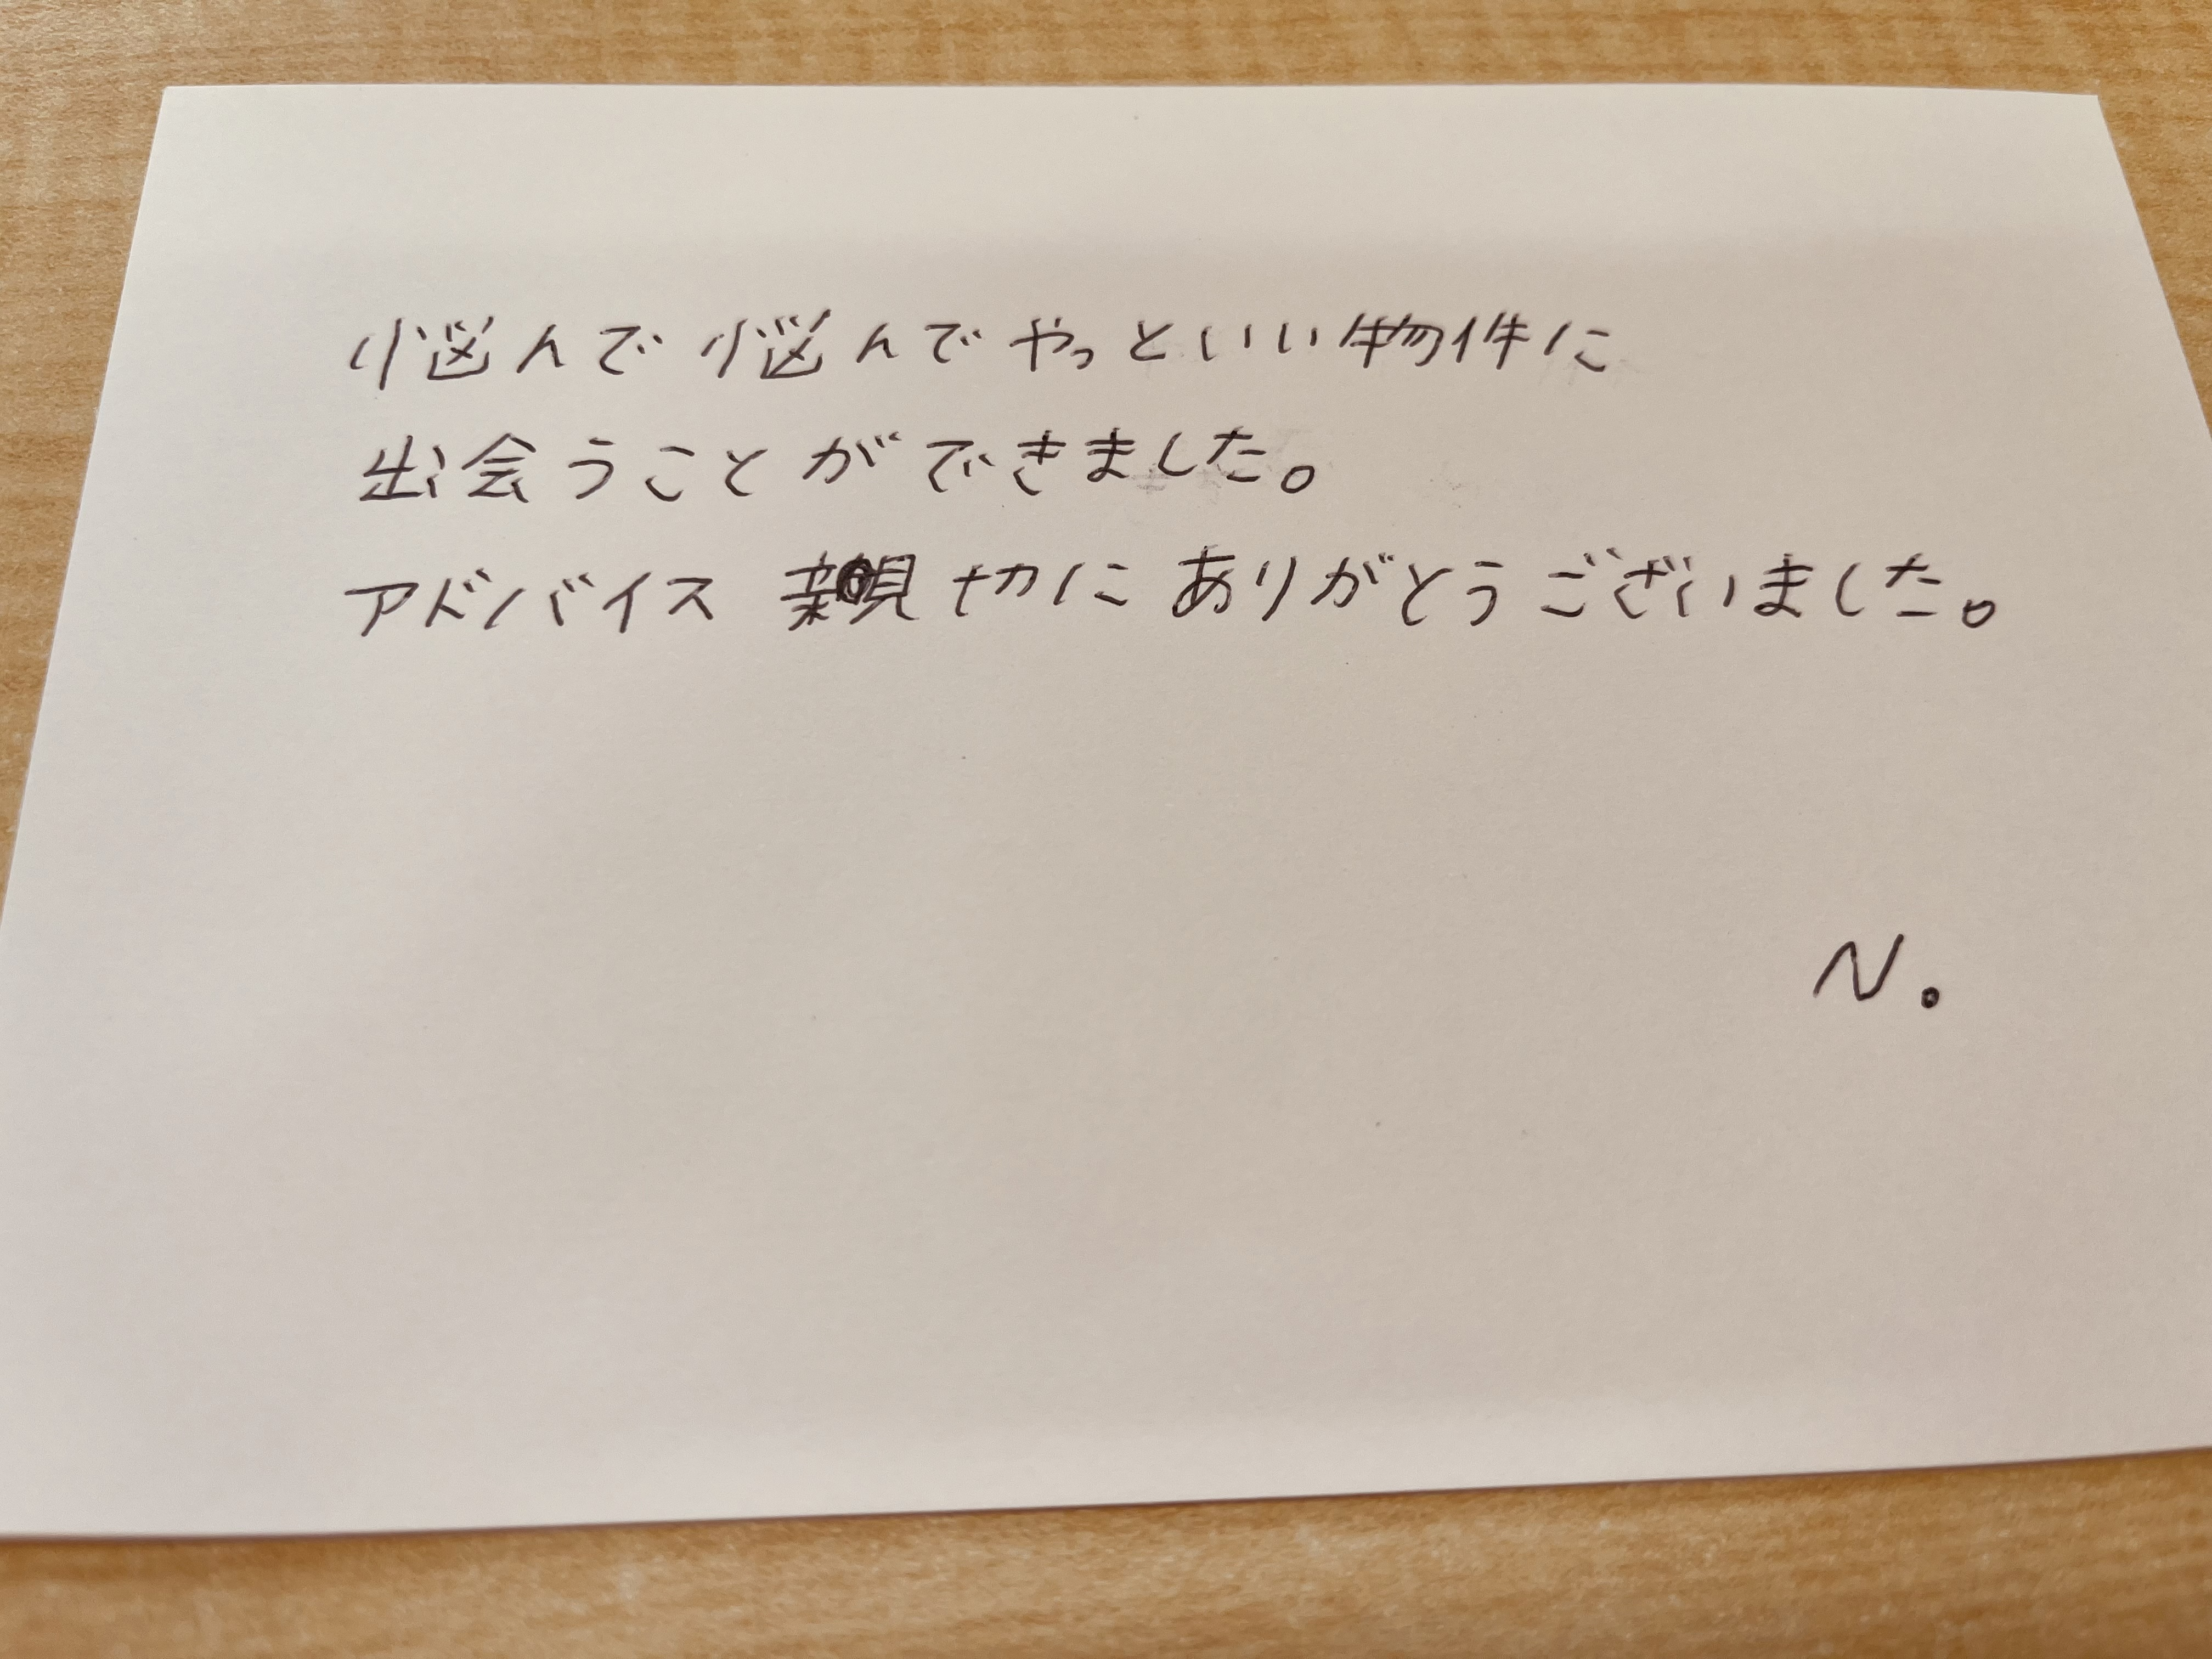 悩んで悩んでやっといい物件に
出会うことができました。
アドバイス 親切にありがとうございました。
N.